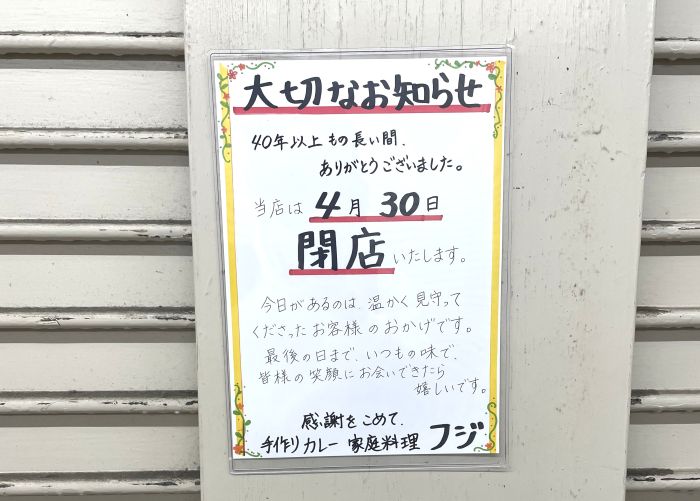 大切なお知らせ
40年以上もの長い間、
ありがとうございました。
当店は 4月 30日
閉店いたします。
今日があるのは、温かく見守って
くださったお客様のおかげです。
最後の日まで、いつもの味で、
皆様の笑顔にお会いできたら
嬉しいです。
感謝をこめて、
手作りカレー 家庭料理 フジ